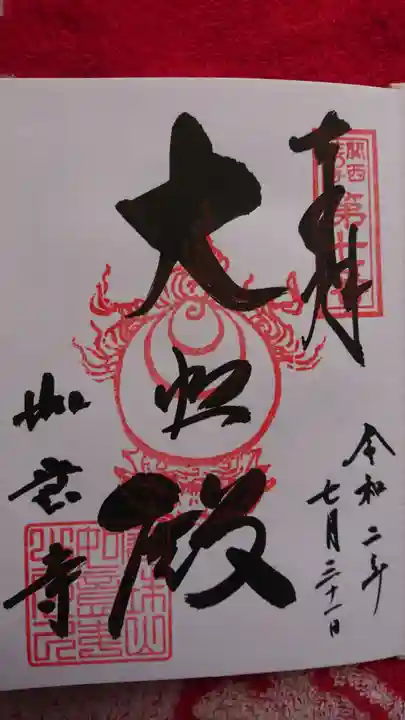 奉拝
関西
第十
令和二年
七月三十一日
大悲殿
如意寺